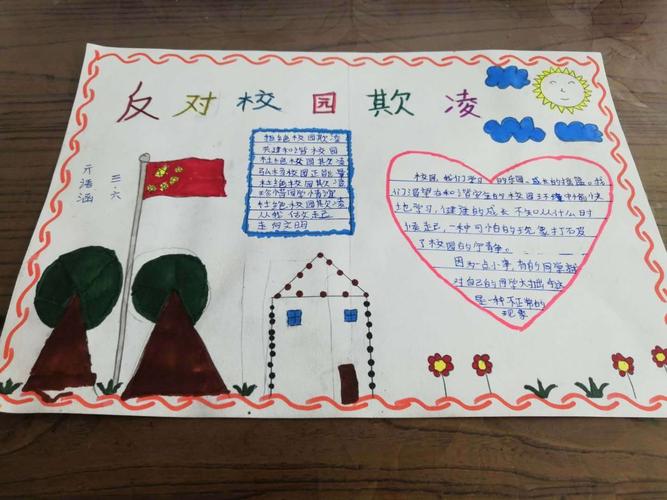 反对校园欺凌
三.六
亓浩涵
杜绝校园欺凌
共建和谐校园
杜绝校园欺凌
弘扬校园正能量
杜绝校园欺凌
珍惜同学情谊
杜绝校园欺凌
从我做起
走向文明
校园,我们学习的乐园、成长的摇篮。我
们渴望在和谐
中愉快
地学习,健康的成长 不知从什么时
候走起,一种可怕的现象打破
了校园的宁静。
因为一点小事,有的同学就
对自己的同学大打出手这
是一种不正常的
现象